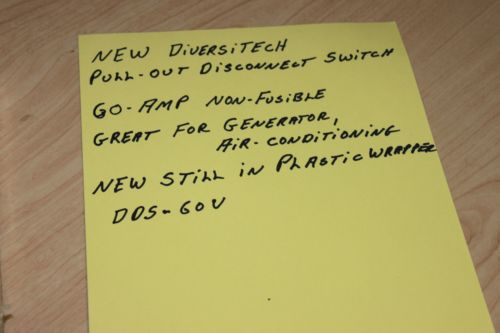 NEW DIVERSITECH
PULL-OUT DISCONNECT SWITCH
60-AMP NON-FUSIBLE
GREAT FOR GENERATOR,
AIR-CONDITIONING
NEW STILL IN PLASTIC WRAPPER
DDS-60U